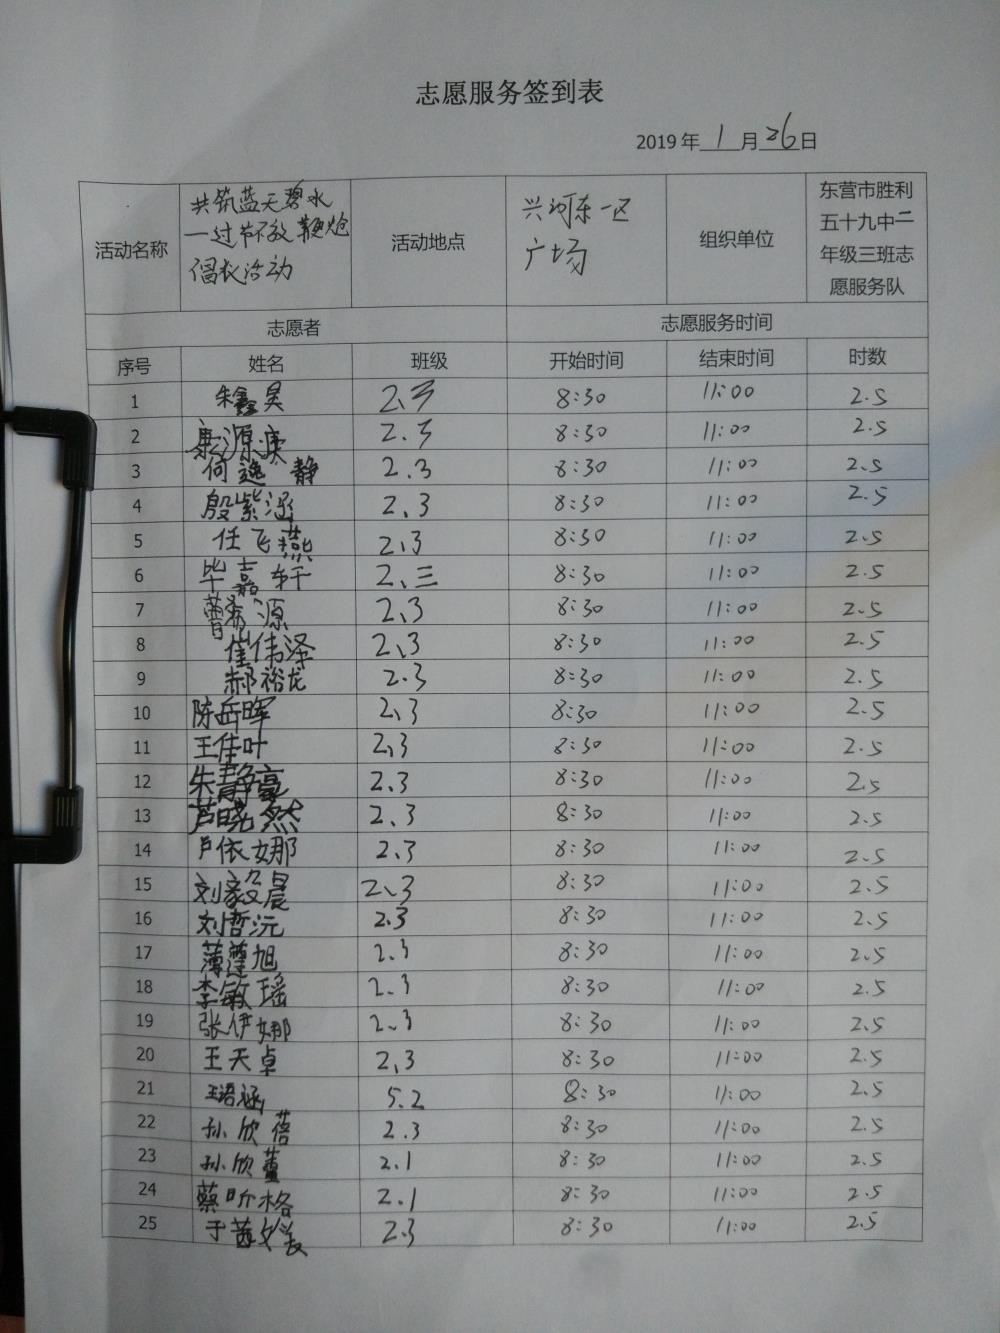 志愿服务签到表
2019 年 1 月 26 日
活动名称 共筑蓝天碧水 一过节不放鞭炮 倡议活动 活动地点 兴河东一区 广场 组织单位 东营市胜利五十九中二年级三班志愿服务队
志愿者 志愿服务时间
序号 姓名 班级 开始时间 结束时间 时数
1 朱鑫昊 2.3 8:30 11:00 2.5
2 康源 2.3 8:30 11:00 2.5
3 何逸静 2.3 8:30 11:00 2.5
4 殷紫涵 2.3 8:30 11:00 2.5
5 任飞燕 2.3 8:30 11:00 2.5
6 毕嘉轩 2.三 8:30 11:00 2.5
7 源 2.3 8:30 11:00 2.5
8 崔伟泽 2.3 8:30 11:00 2.5
9 郝裕龙 2.3 8:30 11:00 2.5
10 陈岳晖 2.3 8:30 11:00 2.5
11 王佳叶 2.3 8:30 11:00 2.5
12 朱静豪 2.3 8:30 11:00 2.5
13 芦晓然 2.3 8:30 11:00 2.5
14 卢依娜 2.3 8:30 11:00 2.5
15 刘毅晨 2.3 8:30 11:00 2.5
16 刘哲沅 2.3 8:30 11:00 2.5
17 薄旭 2.3 8:30 11:00 2.5
18 李敏瑶 2.3 8:30 11:00 2.5
19 张伊娜 2.3 8:30 11:00 2.5
20 王天卓 2.3 8:30 11:00 2.5
21 王语涵 5.2 8:30 11:00 2.5
22 孙欣蓓 2.3 8:30 11:00 2.5
23 孙欣蕾 2.1 8:30 11:00 2.5
24 蔡昕格 2.1 8:30 11:00 2.5
25 于茜 2.3 8:30 11:00 2.5